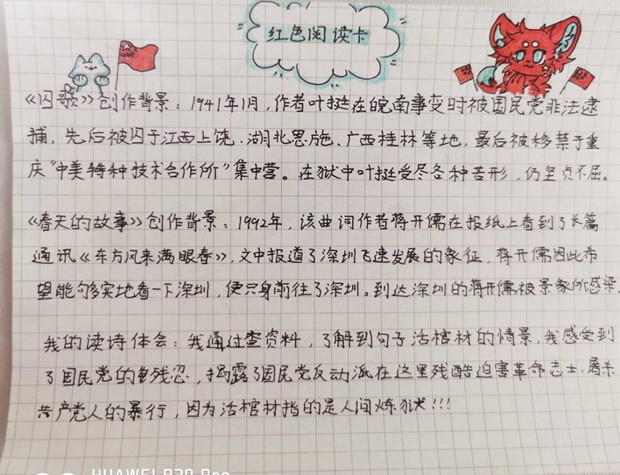 红色阅读卡
《囚歌》创作背景：1941年1月，作者叶挺在皖南事变时被国民党非法逮
捕，先后被囚于江西上饶、湖北恩施、广西桂林等地，最后被移禁于重
庆“中美特种技术合作所”集中营。在狱中叶挺受尽各种苦刑，仍坚贞不屈。
《春天的故事》创作背景：1992年，该曲词作者蒋开儒在报纸上看到了长篇
通讯《东方风来满眼春》，文中报道了深圳飞速发展的象征，蒋开儒因此希
望能够实地看一下深圳，便只身前往了深圳。到达深圳的蒋开儒被景象所感染
我的读诗体会：我通过查资料，了解到句子活棺材的情景，我感受到
了国民党的残忍，揭露了国民党反动派在这里残酷迫害革命志士，屠杀
共产党人的暴行，因为活棺材指的是人间炼狱!!!
HUAWEI P30 Pro